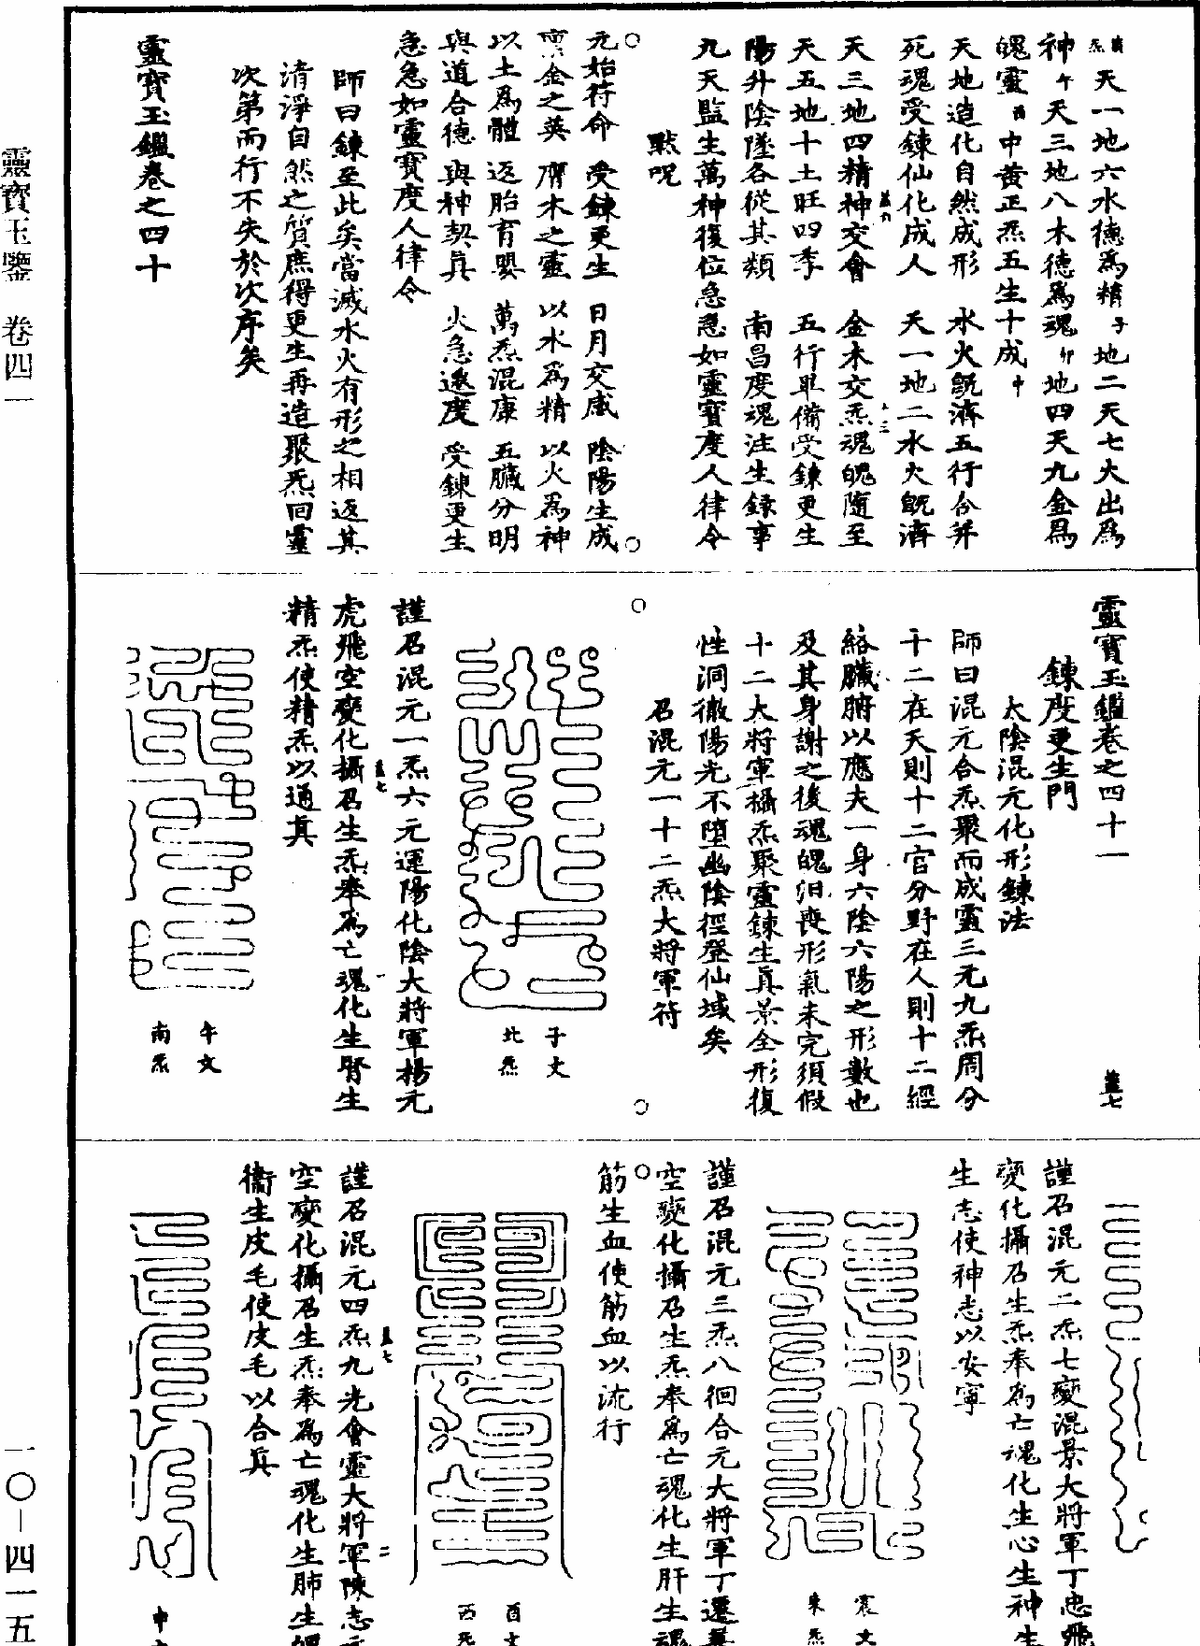 天一地六水德為精子地二天七火出為
神午天三地八木德為魂卯地四天九金為
魄靈酉中黃正炁五生十成中
天地造化自然成形　水火旣濟五行合并
死魂受鍊仙化成人　天一地二水火旣濟
天三地四精神交會　金木交炁魂魄隨至
天五地十土旺四季　五行畢備受鍊更生
陽升陰墜各從其類　南昌度魂注生錄事
九天監生萬神復位急急如靈寶度人律令
默呪
元始符命　受鍊更生　日月交感　陰陽生成
稟金之英　膺木之靈　以水為精　以火為神
以土為體　返胎育嬰　萬炁混康　五臟分明
與道合德　與神契真　火急遷度　受鍊更生
急急如靈寶度人律令
師曰鍊至此矣當滅水火有形之相返其
清淨自然之質庶得更生再造聚炁回靈
次第而行不失於次序矣
靈寶玉鑑卷之四十
靈寶玉鑑卷之四十一
鍊度更生門
太陰混元化形鍊法
師曰混元合炁聚而成靈三元九炁周分
十二在天則十二宮分野在人則十二經
絡臟腑以應夫一身六陰六陽之形數也
及其身謝之後魂魄汩喪形氣未完須假
十二大將軍攝炁聚靈鍊生真景全形復
性洞徹陽光不墮幽陰徑登仙域矣
召混元一十二炁大將軍符
子文
北炁
謹召混元一炁六元運陽化陰大將軍楊元
虎飛空變化攝召生炁奉為亡魂化生腎生
精炁使精炁以通真
午文
南炁
謹召混元二炁七變混景大將軍丁忠飛
變化攝召生炁奉為亡魂化生心生神生
生志使神志以安寧
震文
東炁
謹召混元三炁八徊合元大將軍丁遷
空變化攝召生炁奉為亡魂化生肝生魂
筋生血使筋血以流行
酉文
西炁
謹召混元四炁九光會靈大將軍陳志
空變化攝召生炁奉為亡魂化生肺生魄
衞生皮毛使皮毛以合真
申
靈寶玉鑒　卷四一
一〇－四一五